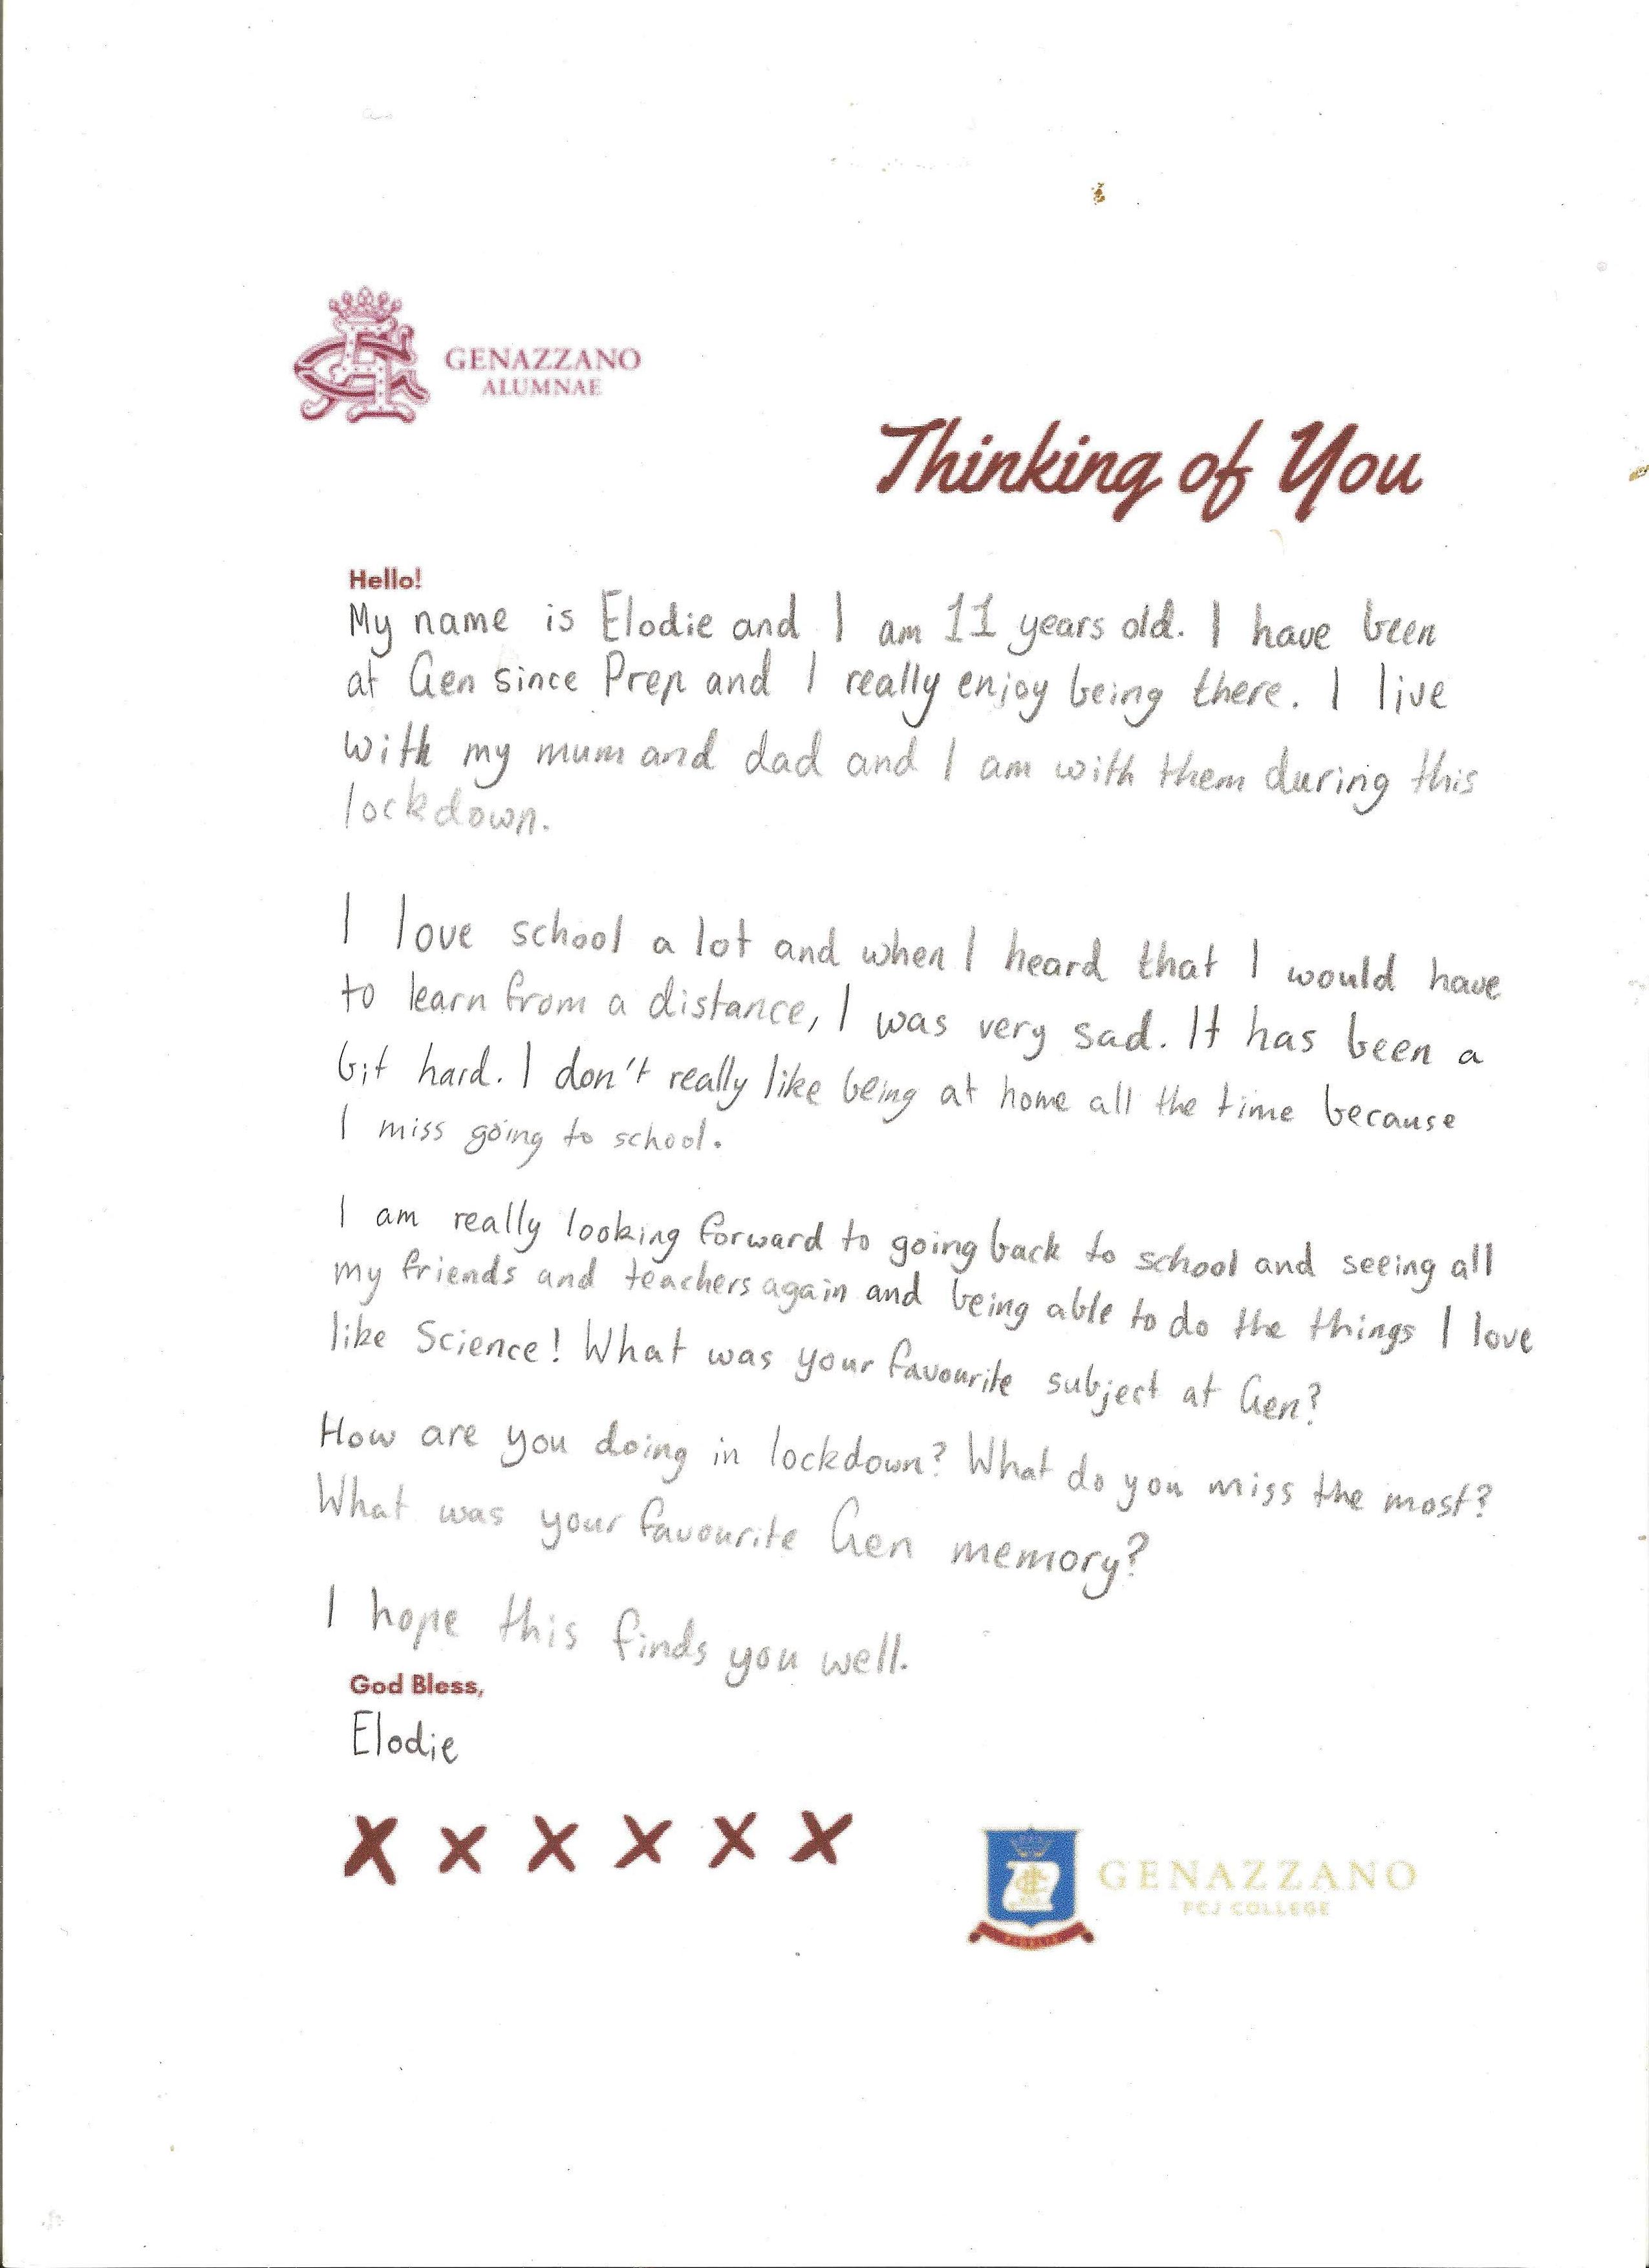 GENAZZANO
ALUMNAE
Thinking of You
Hello!
My name is Elodie and I am 11 years old. I have been
at Gen since Prep and I really enjoy being there. I live
with my mum and dad and I am with them during this
lockdown.
I love school a lot and when I heard that I would have
to learn from a distance, I was very sad. It has been a
bit hard. I don't really like being at home all the time because
I miss going to school.
I am really looking forward to going back to school and seeing all
my friends and teachers again and being able to do the things I love
like Science! What was your favourite subject at Gen?
How are you doing in lockdown? What do you miss the most?
What was your favourite Gen memory?
I hope this finds you well.
God Bless,
Elodie
X X X X X X
GENAZZANO
FCJ COLLEGE